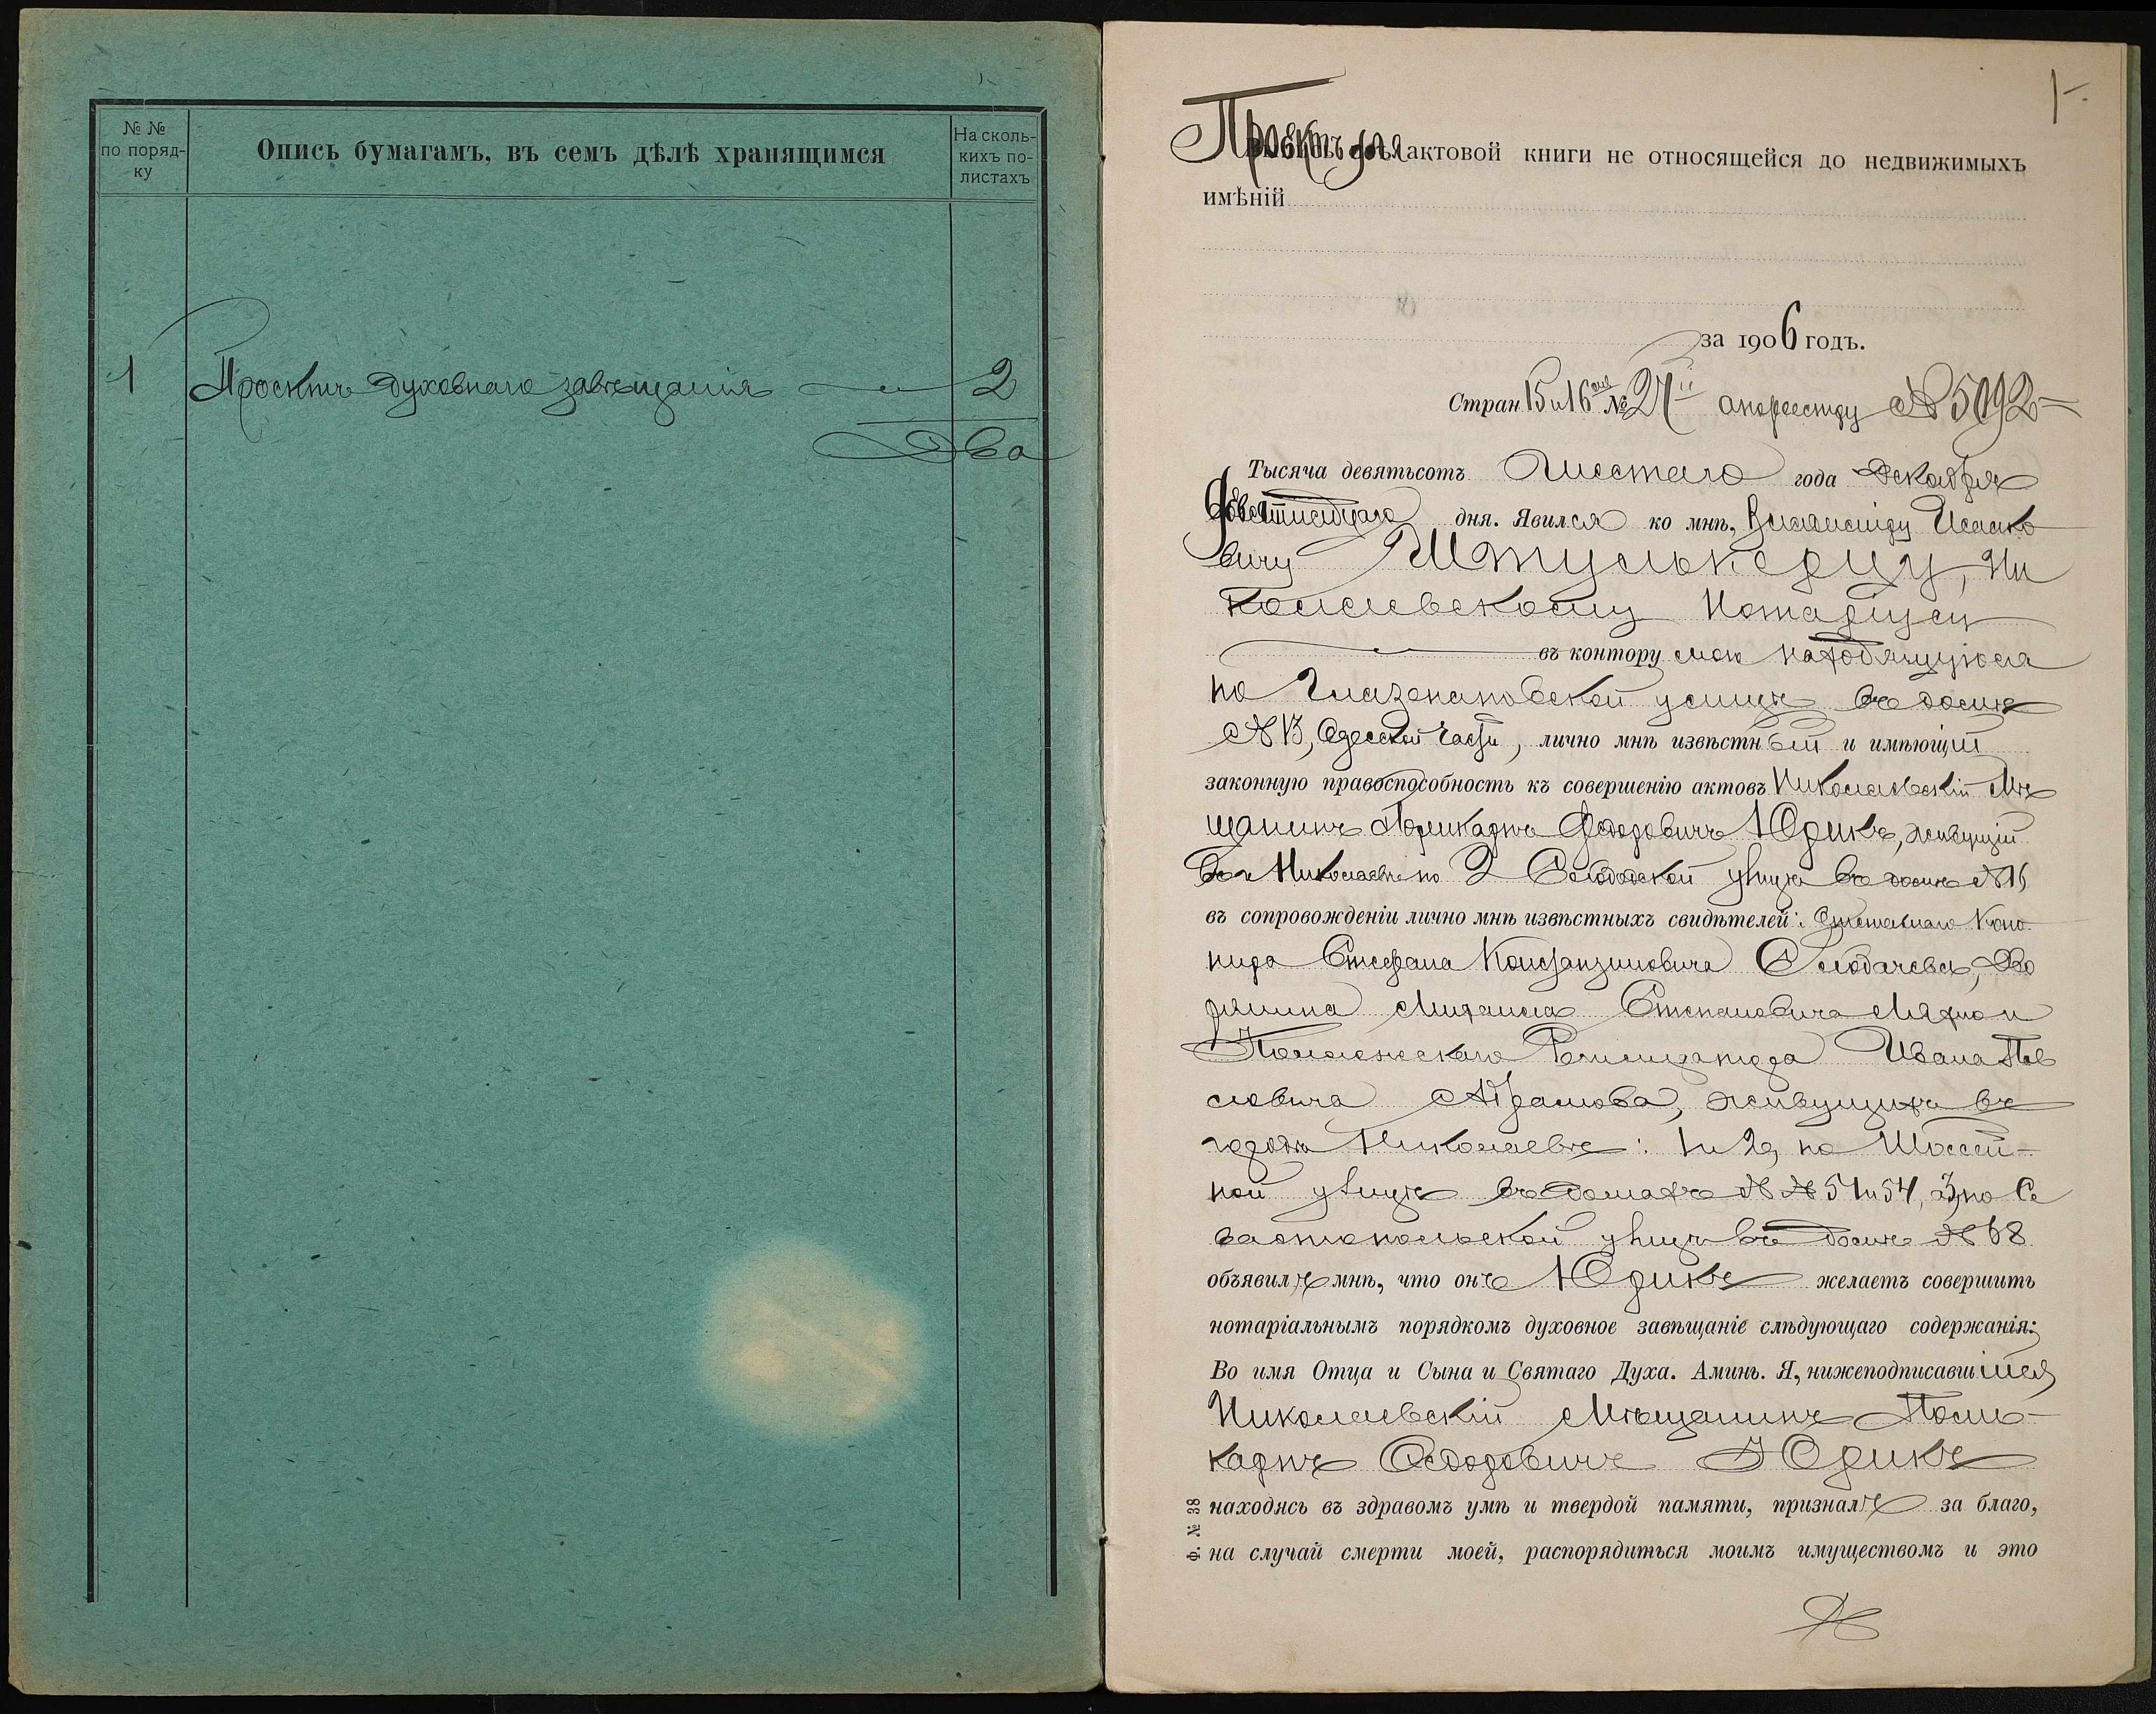 № №
по поряд-
ку
Опись бумагамъ, въ семъ дѣлѣ хранящимся
На сколь-
кихъ по-
листахъ
1 Проектъ духовнаго завѣщанія 2
Два
1
Проектъ для актовой книги не относящейся до недвижимыхъ
имѣній
за 1906 годъ.
Стран 15 и 16 № 27 а по реестру № 5092
Тысяча девятьсотъ Шестаго года Декабря
дня. Явился ко мнѣ, Исаако
вичу Штулькерцу, Ни
колаевскому Нотаріусу
въ контору мою находящуюся
по Глазенаповской улицѣ въ домѣ
№ 13, Одесской части, лично мнѣ извѣстный и имѣющій
законную правоспособность къ совершенію актовъ Николаевскій Мѣ
щанинъ Поликарпъ Ѳедоровичъ Юрикъ, живущій
въ г. Николаевѣ по 2 Слободской улицѣ въ домѣ №
въ сопровожденіи лично мнѣ извѣстныхъ свидѣтелей:
Стефана Константиновича Дво
рянина Михаила Степановича и
Ивана Пав
ловича Абрамова, живущихъ въ
городѣ Николаевѣ: 1 и 2, по Шоссей-
ной улицѣ въ домахъ № № 51 и 54, а 3, по Се
вастопольской улицѣ въ домѣ № 68
объявилъ мнѣ, что онъ Юрикъ желаетъ совершить
нотаріальнымъ порядкомъ духовное завѣщаніе слѣдующаго содержанія:
Во имя Отца и Сына и Святаго Духа. Аминь. Я, нижеподписавшійся
Николаевскій Мѣщанинъ Поли-
карпъ Ѳедоровичъ Юрикъ
находясь въ здравомъ умѣ и твердой памяти, призналъ за благо,
на случай смерти моей, распорядиться моимъ имуществомъ и это
Ф. № 38